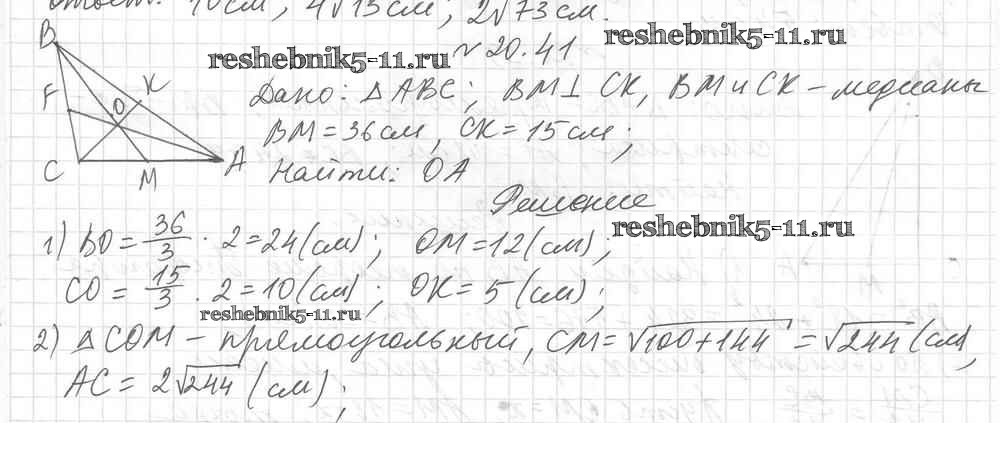 Ответ: 10 см, 4√13 см; 2√73 см.
reshebnik5-11.ru
reshebnik5-11.ru
№ 20.41
B
F
O
K
C
M
A
Дано: △ABC; BM⊥CK, BM и CK – медианы
BM = 36 см, CK = 15 см;
Найти: OA
Решение
reshebnik5-11.ru
1) BO = 36/3 · 2 = 24 (см); OM = 12 (см);
CO = 15/3 · 2 = 10 (см); OK = 5 (см);
reshebnik5-11.ru
2) △COM – прямоугольный, CM = √100+144 = √244 (см),
AC = 2√244 (см);